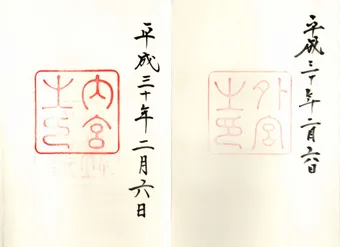 平成三十年二月六日
外宮之印
平成三十年二月六日
内宮之印